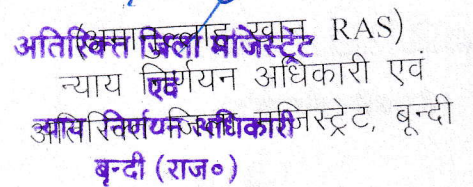 (अमानुल्लाह खान RAS)
अतिरिक्त जिला मजिस्ट्रेट
न्याय निर्णयन अधिकारी एवं
एवं
अतिरिक्त जिला मजिस्ट्रेट, बून्दी
न्याय निर्णयन अधिकारी
बून्दी (राज०)